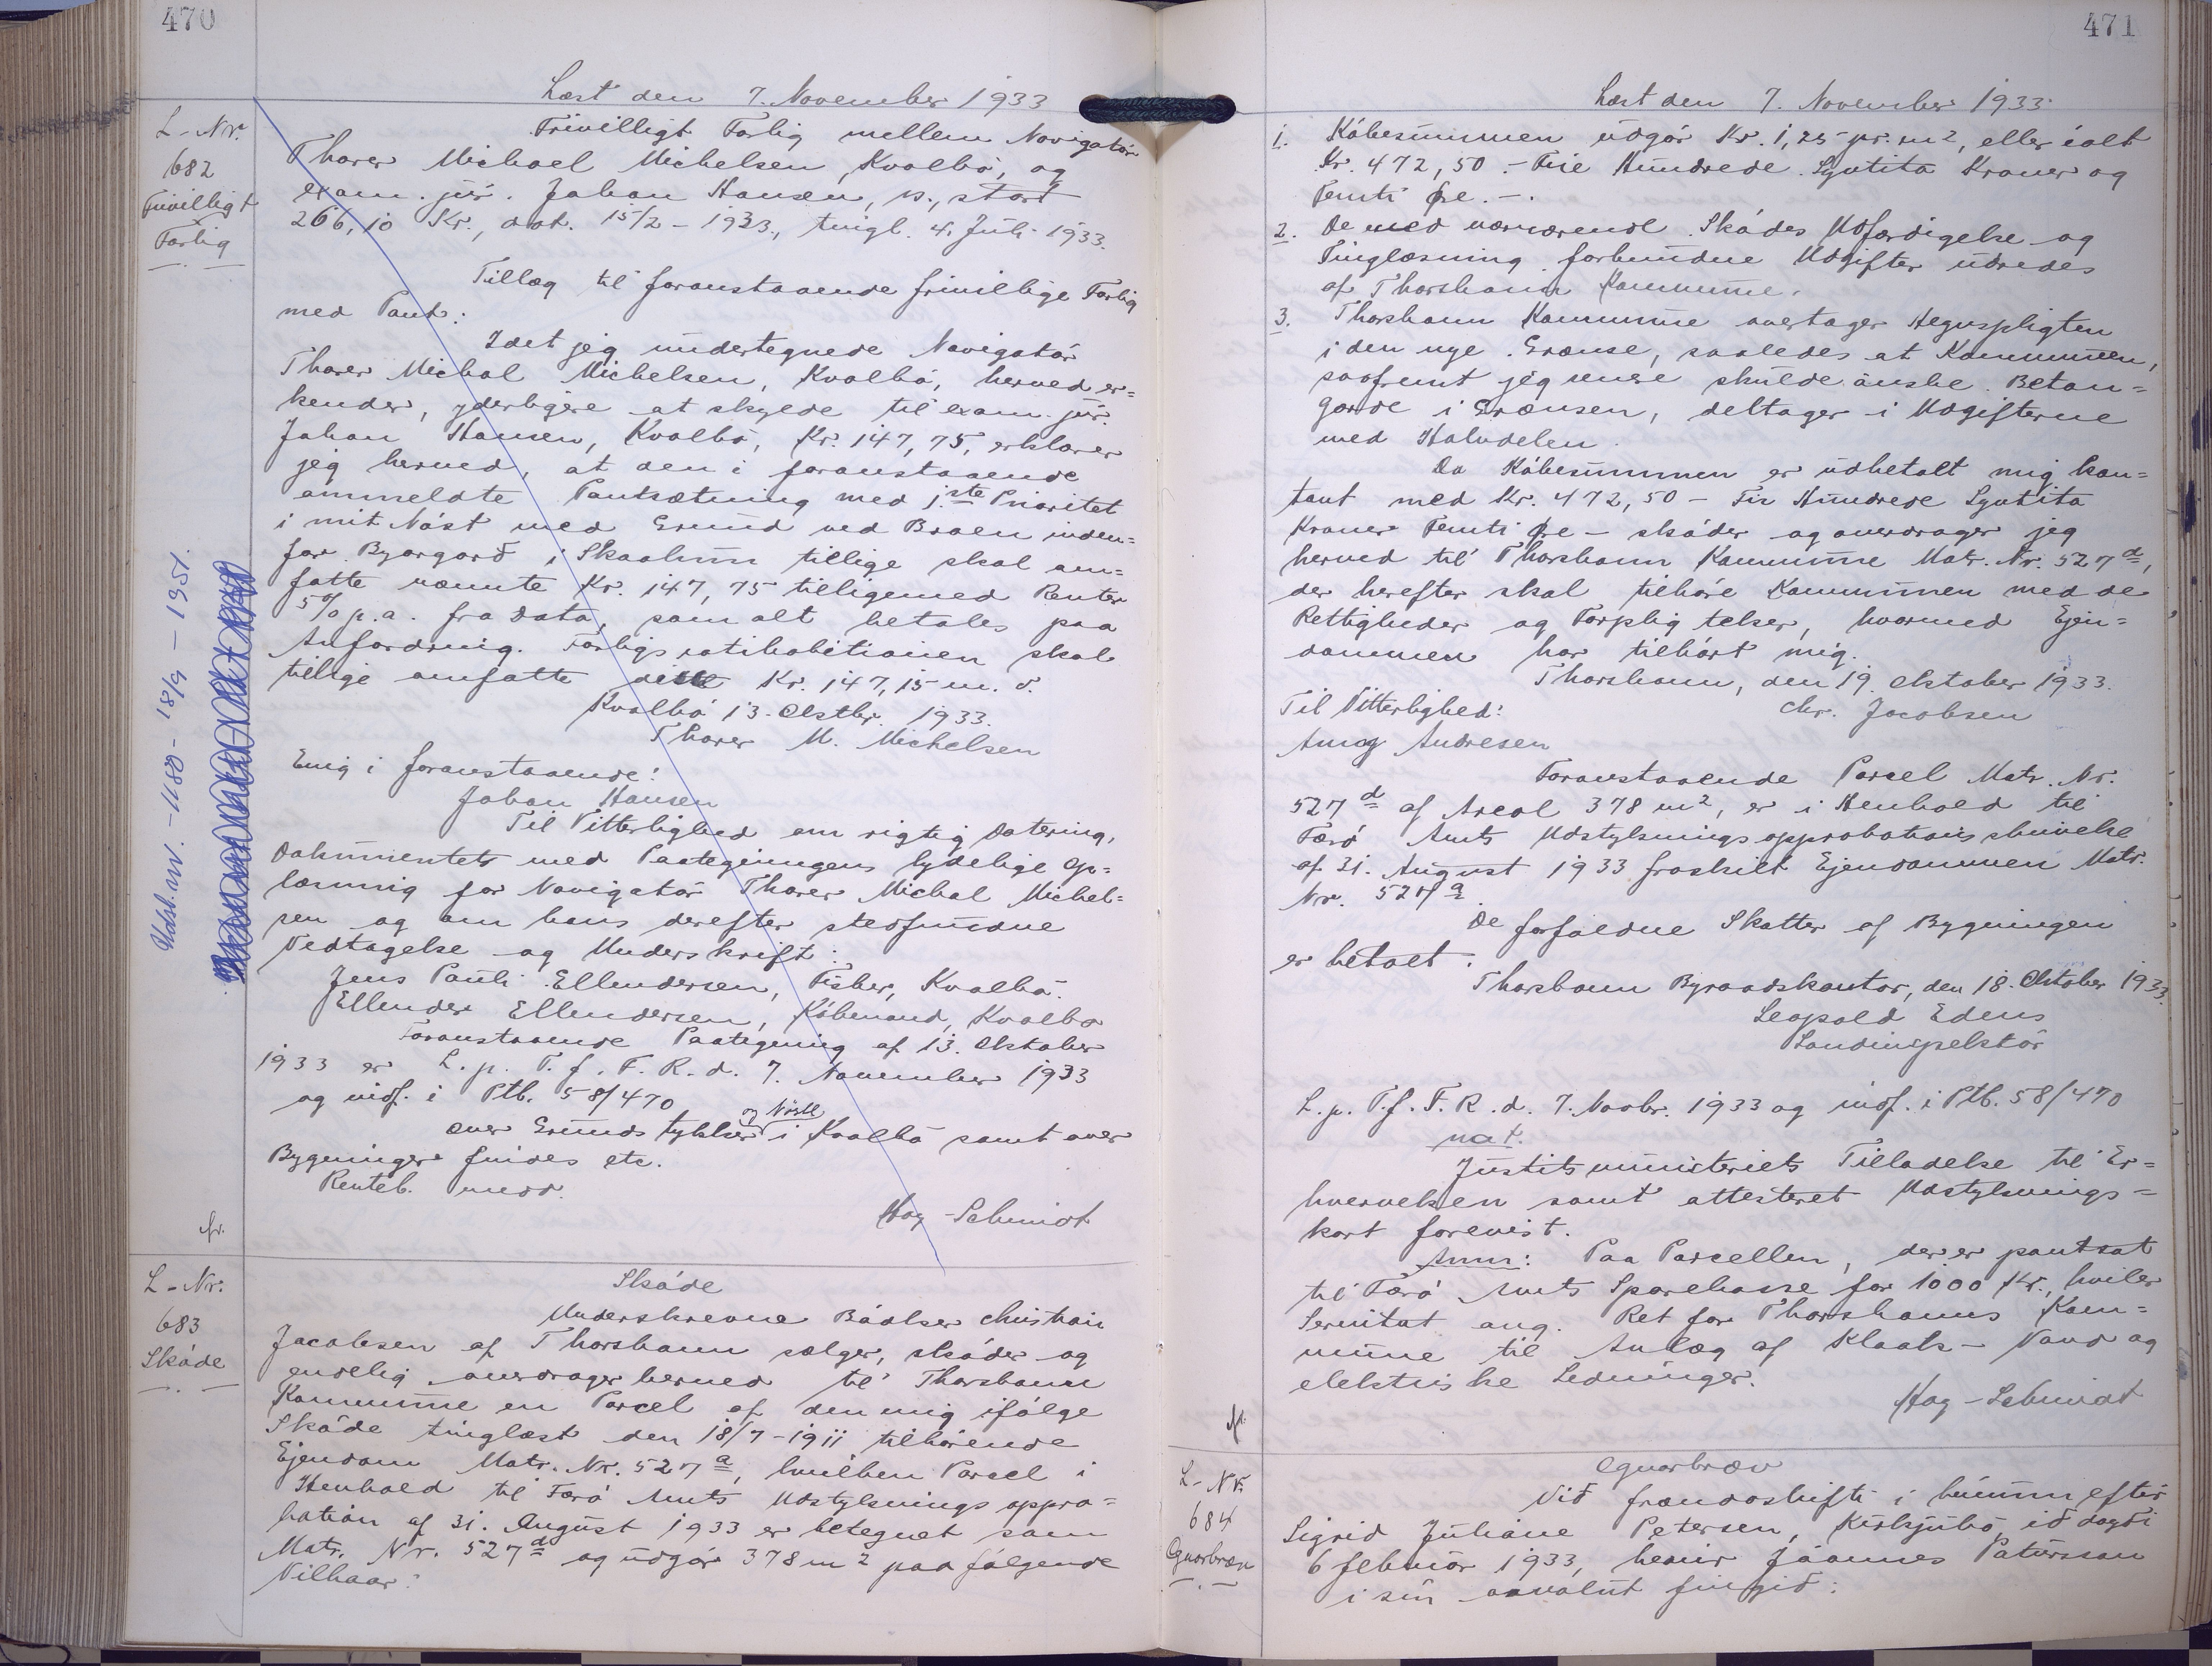 470
Læst den 7. November 1933
L-Nr.
682
Frivilligt
Forlig
Frivilligt Forlig mellem Navigatör
Thorer Michael Michelsen, Kvalbö, og
exam. jur. Johan Hansen, s., stort
266,10 Kr., dat. 15/2-1933, tingl. 4. Juli 1933.
Tillæg til foranstaaende frivillige Forlig
med Pant:
Idet jeg undertegnede Navigatör
Thorer Michal Michelsen, Kvalbö, herved er=
kender, yderligere at skylde til exam. jur.
Johan Hansen, Kvalbö, Kr. 147,75, erklærer
jeg herved, at den i foranstaaende
ommeldte Pantsætning med 1ste Prioritet
i mit Nöst med Grund ved Bråen inden=
for Byargard i Skaalum tillige skal om=
fatte nævnte Kr. 147,75 tilligemed Renter
5% p.a. fra Dato, som alt betales paa
Anfordring. Forligsratihabitionen skal
tillige omfatte disse Kr. 147,15 m. v.
Kvalbö 13. Oktbr. 1933.
Thorer M. Michelsen
Enig i foranstaaende:
Johan Hansen
Til Vitterlighed om rigtig Datering,
Dokumentets med Paategningens lydelige Op=
læsning for Navigatör Thorer Michal Michel=
sen og om hans derefter stedfundne
Vedtagelse og Underskrift:
Jens Pauli Ellendersen, Fisker, Kvalbö.
Ellender Ellendersen, Köbmand, Kvalbö
Foranstaaende Paategning af 13. Oktober
1933 er L. p. T. f. F. R. d. 7. November 1933
og indf. i Ptb. 58/470
over Grundstykker og Nöst i Kvalbö samt over
Bygninger findes etc.
Renteb. medd.
Hoy-Schmidt
fr.
Udsl. - 1180 - 18/9 - 1951.
L-Nr.
683
Sköde
Sköde
Underskrevne Bödker Christian
Jacobsen af Thorshavn sælger, sköder og
endelig overdrager herved til Thorshavn
Kommune en Parcel af den mig ifölge
Sköde tinglæst den 18/7-1911 tilhörende
Ejendom Matr. Nr. 527a, hvilken Parcel i
Henhold til Færö Amts Udstyknings appro=
bation af 31. August 1933 er betegnet som
Matr. Nr. 527d og udgör 378 m2 paa fölgende
Vilkaar:
471
Læst den 7. November 1933.
1. Köbesummen udgör Kr. 1,25 pr. m2, eller ialt
Kr. 472,50 - Fire Hundrede Syvtito Kroner og
Femti Øre. -.
2. De med nærværende Skødes Udfærdigelse og
Tinglæsning forbundne Udgifter udredes
af Thorshavn Kommune.
3. Thorshavn Kommune overtager Hegnspligten
i den nye Grænse, saaledes at Kommunen,
saafremt jeg senere skulde önske Beton=
gærde i Grænsen, deltager i Udgifterne
med Halvdelen.
Da Köbesummen er udbetalt mig kon=
tant med Kr. 472,50 - Fir Hundrede Syvtito
Kroner Femti Øre - sköder og overdrager jeg
herved til Thorshavn Kommune Matr. Nr. 527d,
der herefter skal tilhöre Kommunen med de
Rettigheder og Forpligtelser, hvormed Ejen=
dommen har tilhört mig.
Thorshavn, den 19. Oktober 1933.
Til Vitterlighed:
Chr. Jacobsen
Andresen
Foranstaaende Parcel Matr. Nr.
527d af Areal 378 m2, er i Henhold til
Færö Amts Udstykningsapprobationsskrivelse
af 31. August 1933 fraskilt Ejendommen Matr.
Nr. 527a.
De forfaldne Skatter af Bygningen
er betalt.
Thorshavn Byraadskontor, den 18. Oktober 1933.
Leopold Edens
Landinspektör
L. p. T. f. F. R. d. 7. Novbr. 1933 og indf. i Ptb. 58/470
nat.
Justitsministeriets Tilladelse til Er=
hvervelsen samt attesteret Udstyknings=
kort forevist.
Anm: Paa Parcellen, der er pantsat
til Færö Amts Sparekasse for 1000 Kr., hviler
Servitut ang. Ret for Thorshavns Kom=
mune til Anlæg af Kloak- Vand og
elektriske Ledninger.
Hoy-Schmidt
fr.
L-Nr.
684
Ognarbræv
Ognarbræv
Við frændaskifti i búnum eftir
Sigrid Juliane Petersen, Kirkjubö, ið doyði
6 februar 1933, hevir Jóannes Patursson
i sín aavalut fingið: